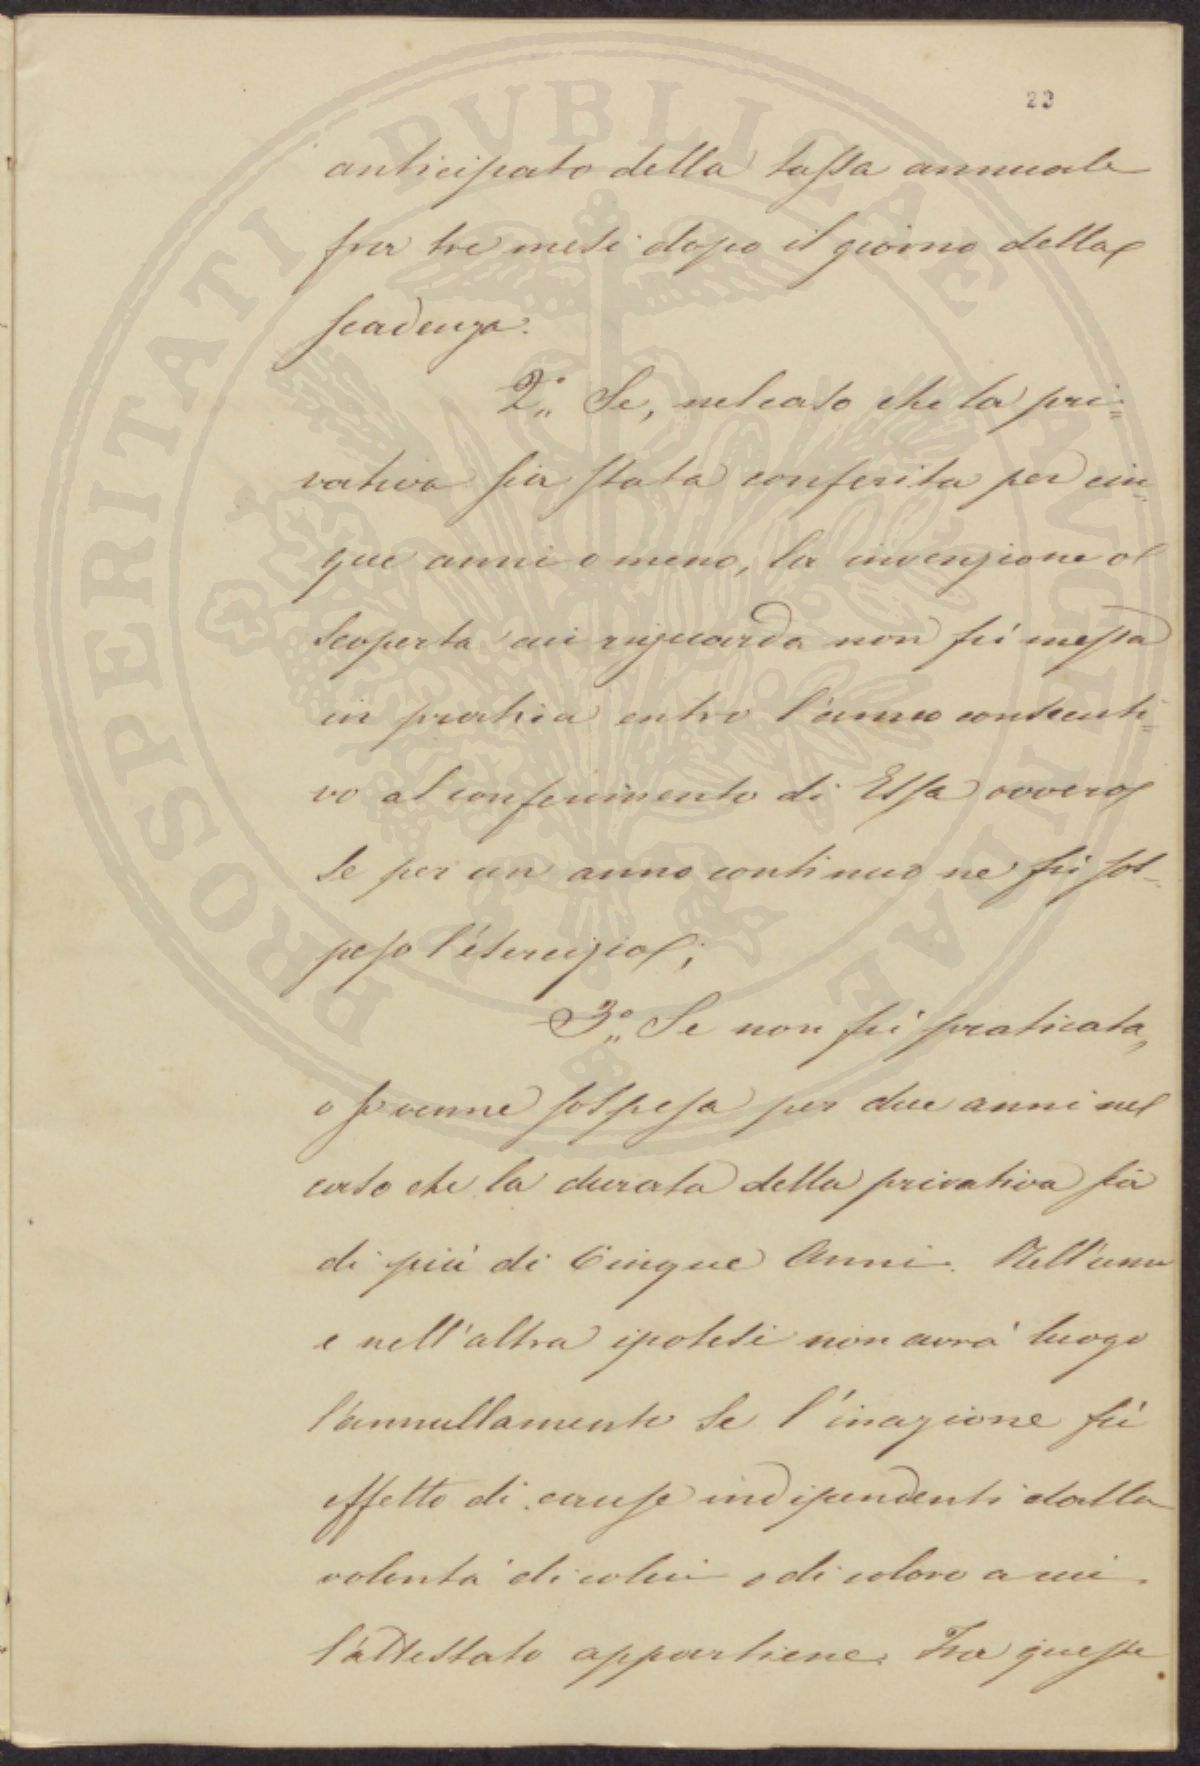 23
anticipato della tassa annuale
fra tre mesi dopo il giorno della
scadenza.
2.° Se, nel caso che la pri=
vativa sia stata conferita per cin=
que anni o meno, la invenzione o
scoperta cui riguarda non fù messa
in pratica entro l'anno consecuti=
vo al conferimento di Essa ovvero
se per un anno continuo ne fù sos=
peso l'esercizio;
3.° Se non fù praticata,
o se venne sospesa per due anni nel
caso che la durata della privativa sia
di più di Cinque Anni. Nell'una
e nell'altra ipotesi non avrà luogo
l'annullamento se l'inazione fù
effetto di cause indipendenti dalla
volontà di colui o di coloro a cui
l'attestato appartiene. Fra queste
PROSPERITATI PVBLICAE AVGENDAE